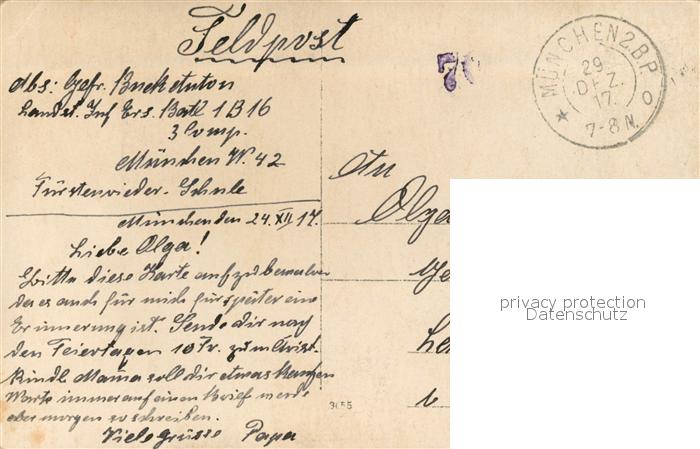 Feldpost
Abs: Gefr. Buck Anton
Landst. Inf Ers. Batl 1 B 16
3 Comp.
München W. 42
Fürstenrieder-Schule
München den 24. XII 17.
Liebe Olga!
Bitte diese Karte aufzubewahren
da es auch für mich für später eine
Erinnerung ist. Sende dir nach
den Feiertagen 10 Fr. zum Christ-
kindl Mama soll dir etwas kaufen
Warte immer auf einen Brief werde
aber morgen so schreiben.
Viele grüsse Papa
MÜNCHEN 2.B.P.
29
DEZ.
17.
7-8 N.
An
Olga
3655
privacy protection
Datenschutz